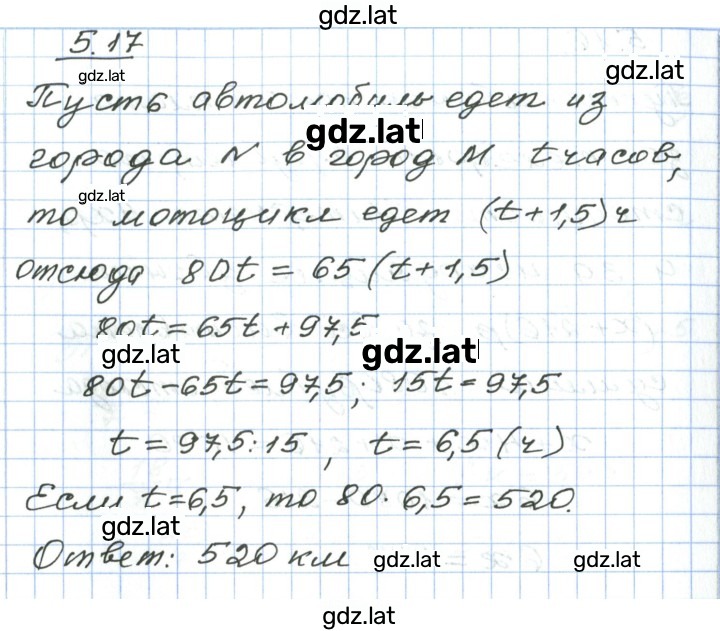 gdz.lat
5.17
gdz.lat
gdz.lat
Пусть автомобиль едет из
gdz.lat
города N в город M t часов,
gdz.lat
то мотоцикл едет (t+1,5)ч
отсюда 80t = 65(t+1,5)
80t = 65t + 97,5
gdz.lat
gdz.lat
80t-65t=97,5; 15t=97,5
t = 97,5:15, t = 6,5 (ч)
Если t=6,5, то 80·6,5=520.
gdz.lat
Ответ: 520 км
gdz.lat
gdz.lat
gdz.lat